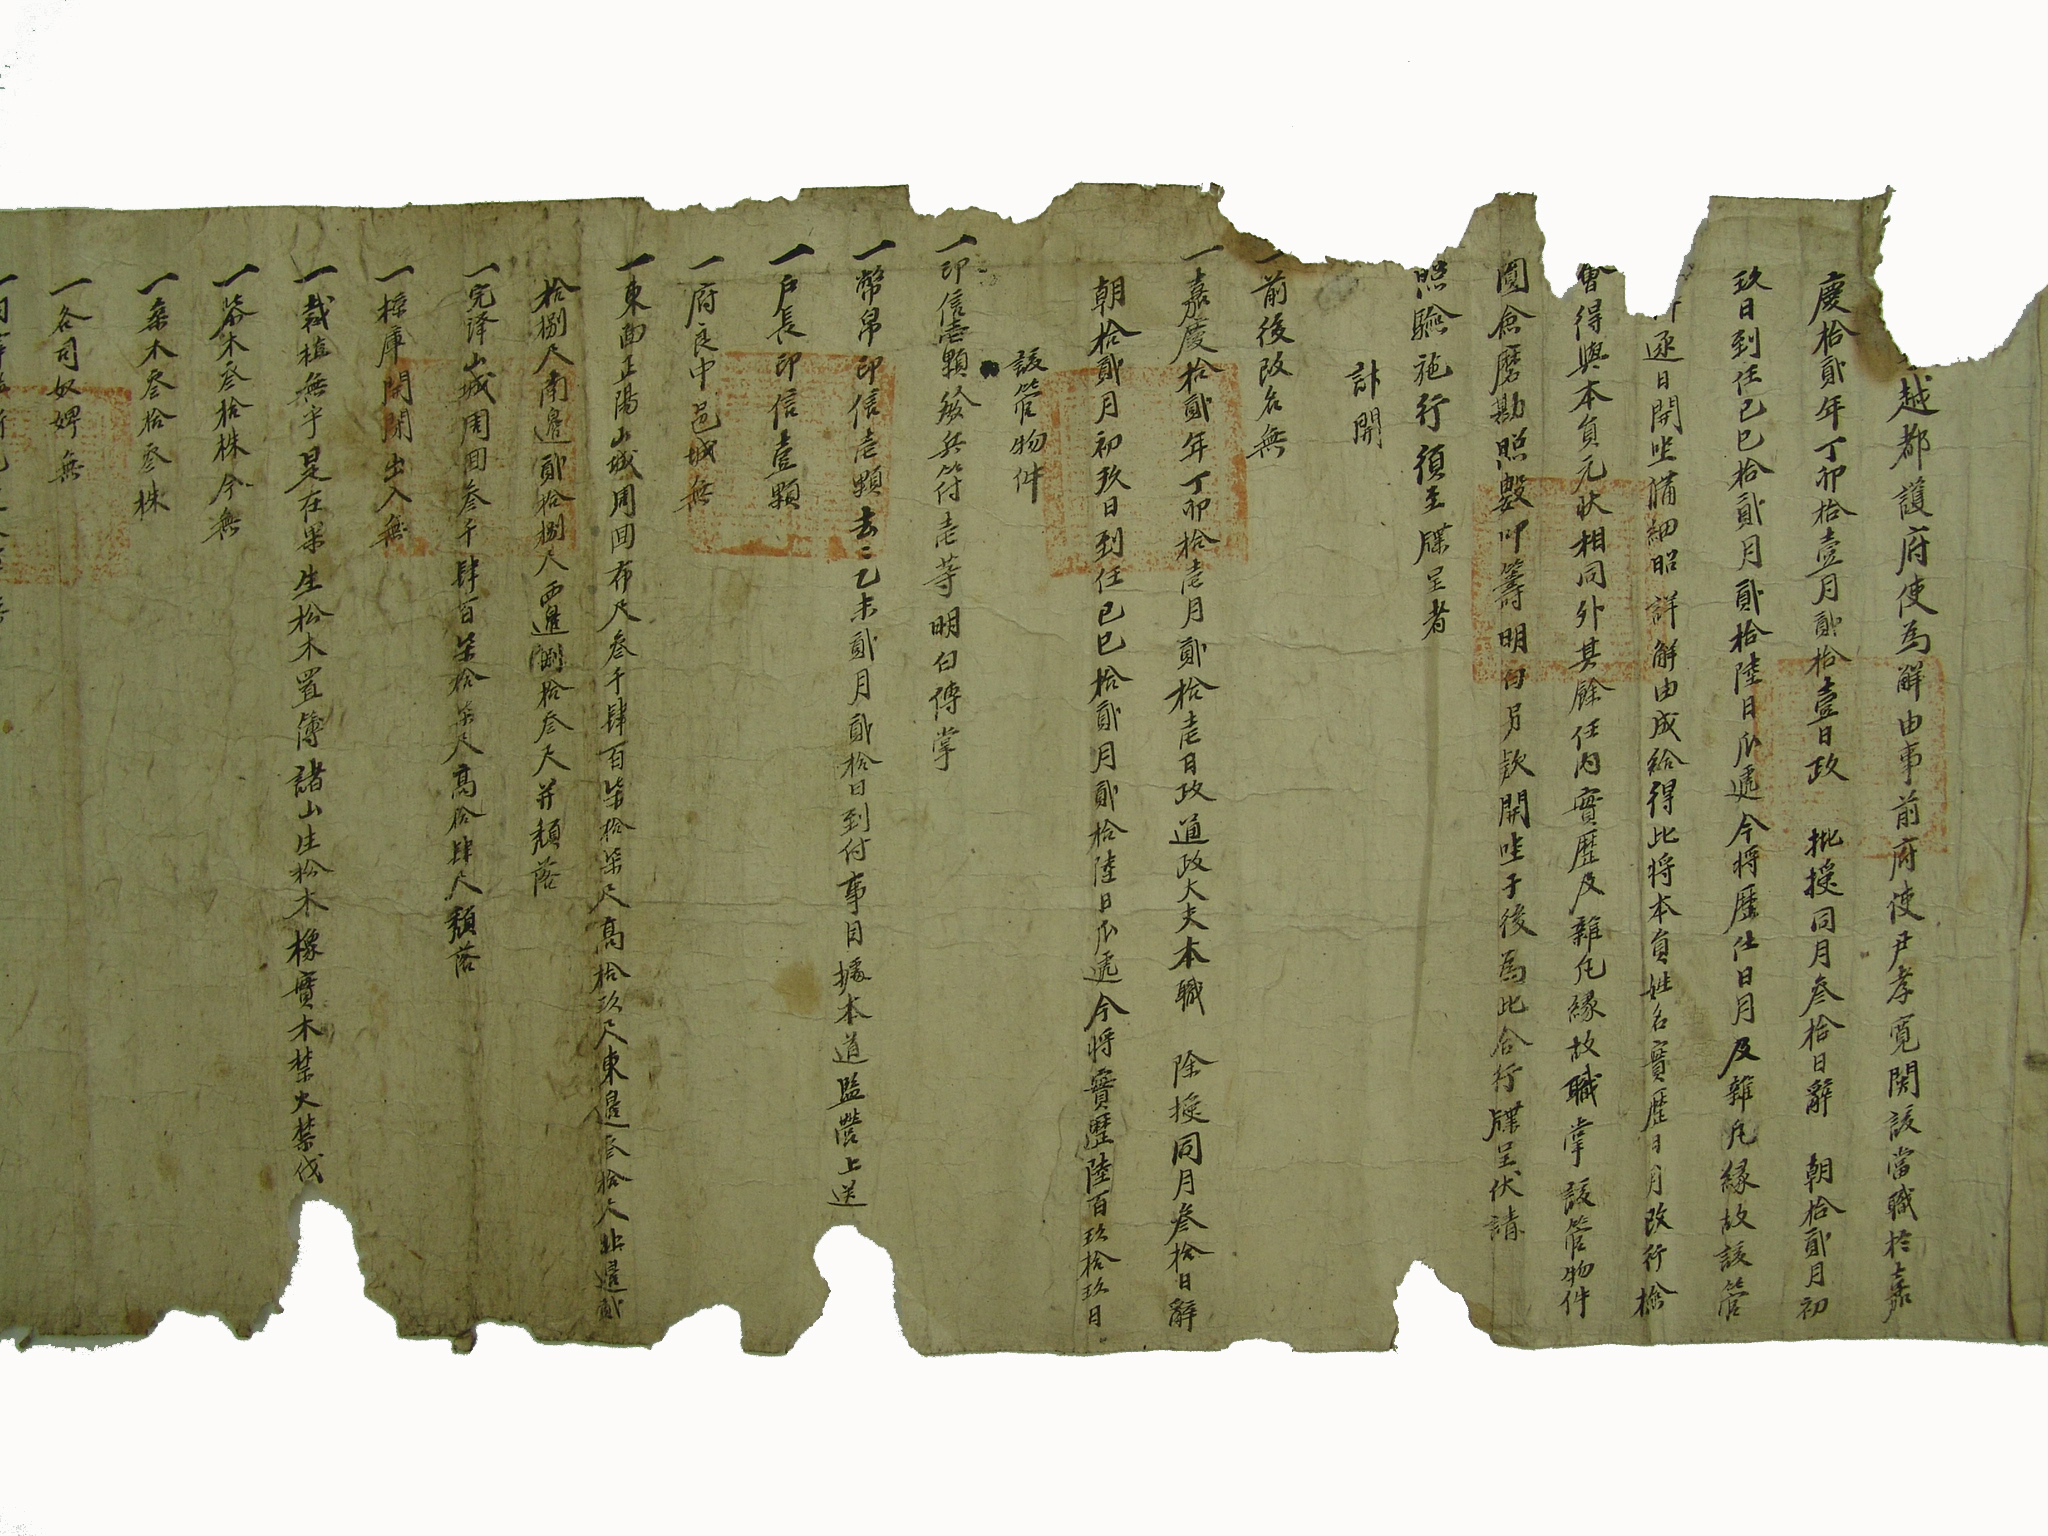 越都護府使為解由事前府使尹孝寬関該當職於嘉
慶拾貳年丁卯拾壹月貳拾壹日政 批授同月叁拾日辭 朝拾貳月初
玖日到任己巳拾貳月貳拾陸日瓜遞今將歷仕日月及雜凡緣故該管
逐日開坐備細昭詳解由成給得此將本員姓名實歷日月改行檢
會得與本員元狀相同外其餘任內實歷及雜凡緣故職掌該管物件
圓僉磨勘照數叩籌明白另款開坐于後為此合行牒呈伏請
照驗施行須至牒呈者
計開
一前後改名無
一嘉慶拾貳年丁卯拾壱月貳拾壱日政通政大夫本職 除授同月叁拾日辭
朝拾貳月初玖日到任己巳拾貳月貳拾陸日瓜遞今將實歷陸百玖拾玖日
該管物件
一印信壱顆發兵符壱等明白傳掌
一幣帛印信壱顆去ミ乙未貳月貳拾日到付事目據本道監營上送
一戶長印信壹顆
一府良中邑城無
一東面正陽山城周回布尺叁千肆百柒拾柒尺高拾玖尺東邊叁拾尺北邊貳
拾捌尺南邊貳拾捌尺西邊捌拾叁尺并頹落
一完澤山城周回叁千肆百柒拾柒尺高拾肆尺頹落
一樑庫開閉出入無
一栽植無乎是在果生松木置簿諸山生松木橡實木禁火禁伐
一漆木叁拾株今無
一桑木叁拾叁株
一各司奴婢無